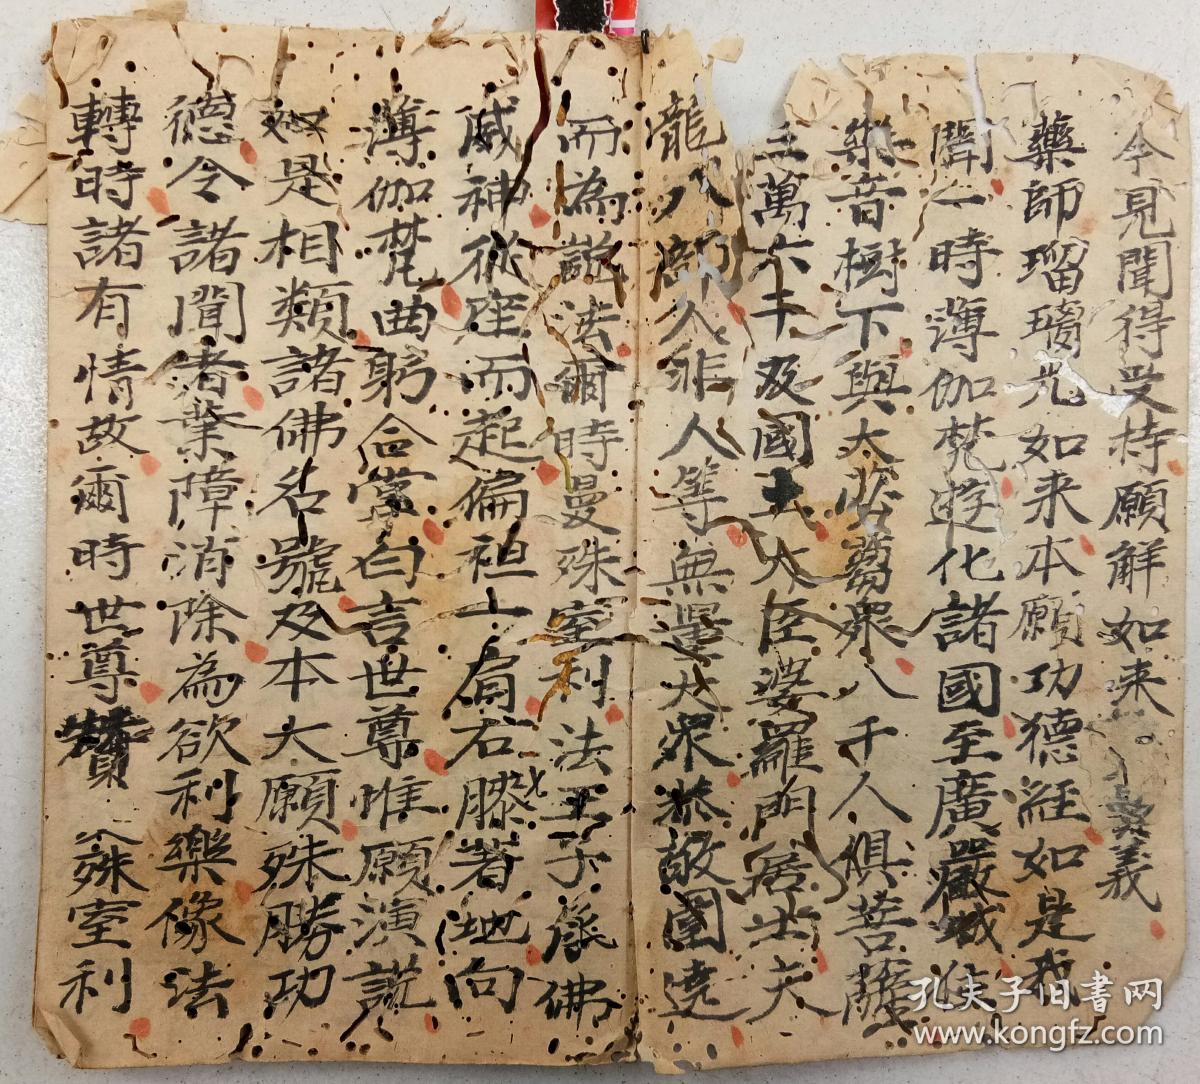 今見聞得受持願解如来真義
藥師瑠璃光如来本願功德経如是我
聞一時薄伽梵遊化諸國至廣嚴城住
樂音樹下與大苾蒭衆八千人俱菩薩
三萬六千及國王大臣婆羅門居士天
龍八部人非人等無量大衆恭敬圍遶
而為說法爾時曼殊室利法王子承佛
威神從座而起偏袒一肩右膝著地向
薄伽梵曲躬合掌白言世尊惟願演說
如是相類諸佛名號及本大願殊勝功
德令諸聞者業障消除為欲利樂像法
轉時諸有情故爾時世尊讚 殊室利
孔夫子旧書网
www.kongfz.com